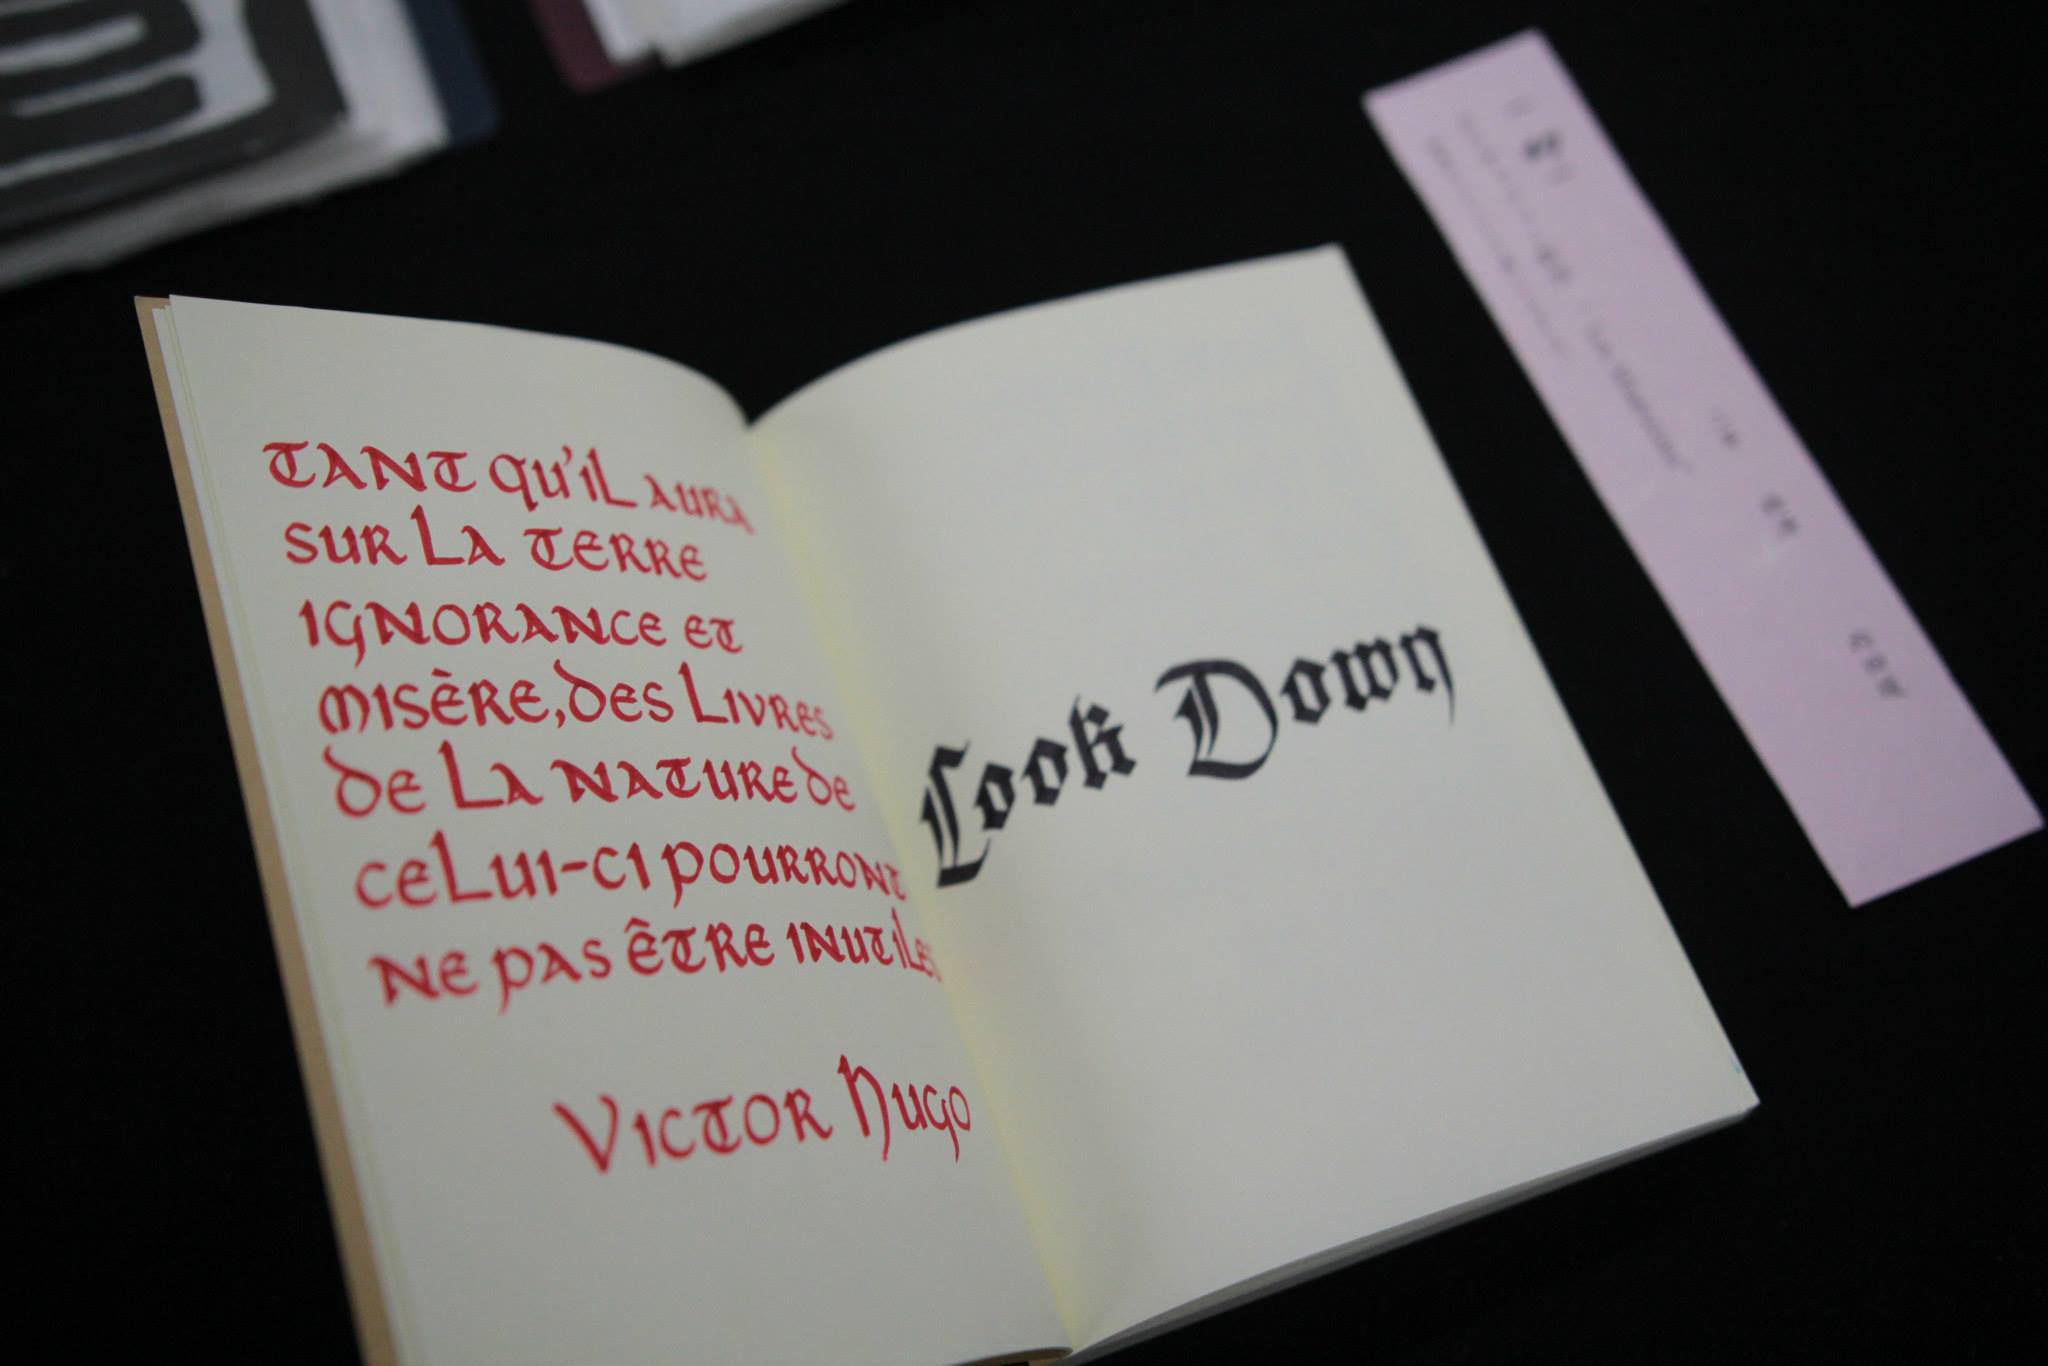 TANT QU'IL AURA
SUR LA TERRE
IGNORANCE ET
MISÈRE, DES LIVRES
DE LA NATURE DE
CELUI-CI POURRONT
NE PAS ÊTRE INUTILES
VICTOR HUGO
Look Down